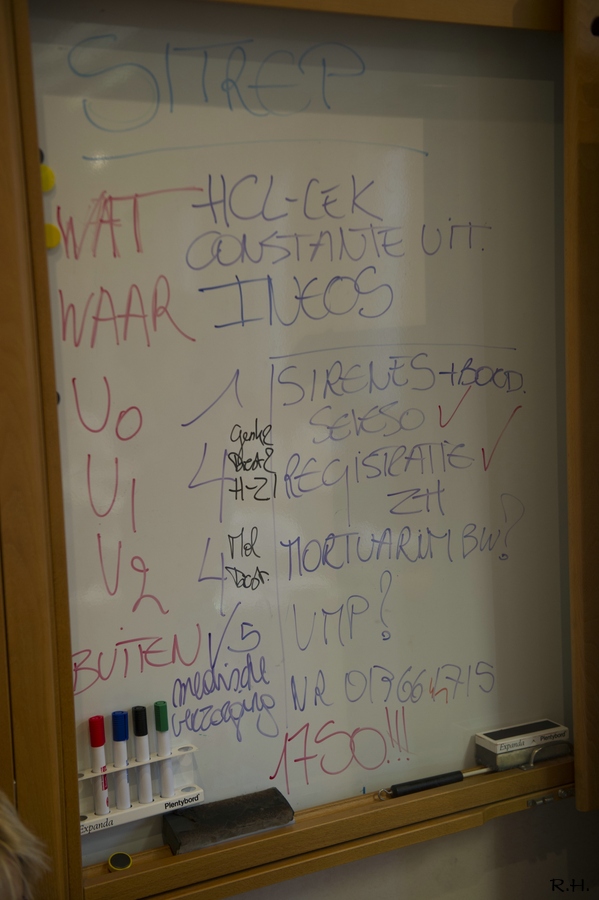 SITREP
WAT HCL-LEK
CONSTANTE UIT.
WAAR INEOS
U0 1 SIRENES + BOOD.
SEVESO ✓
U1 4 REGISTRATIE ✓
ZH
U2 4 Mol MORTUARIUM BW?
BUITEN 5 UMP?
medische
verzorging NR
1750!!!
Expanda Plentybord
Expanda Plentybord
R.H.